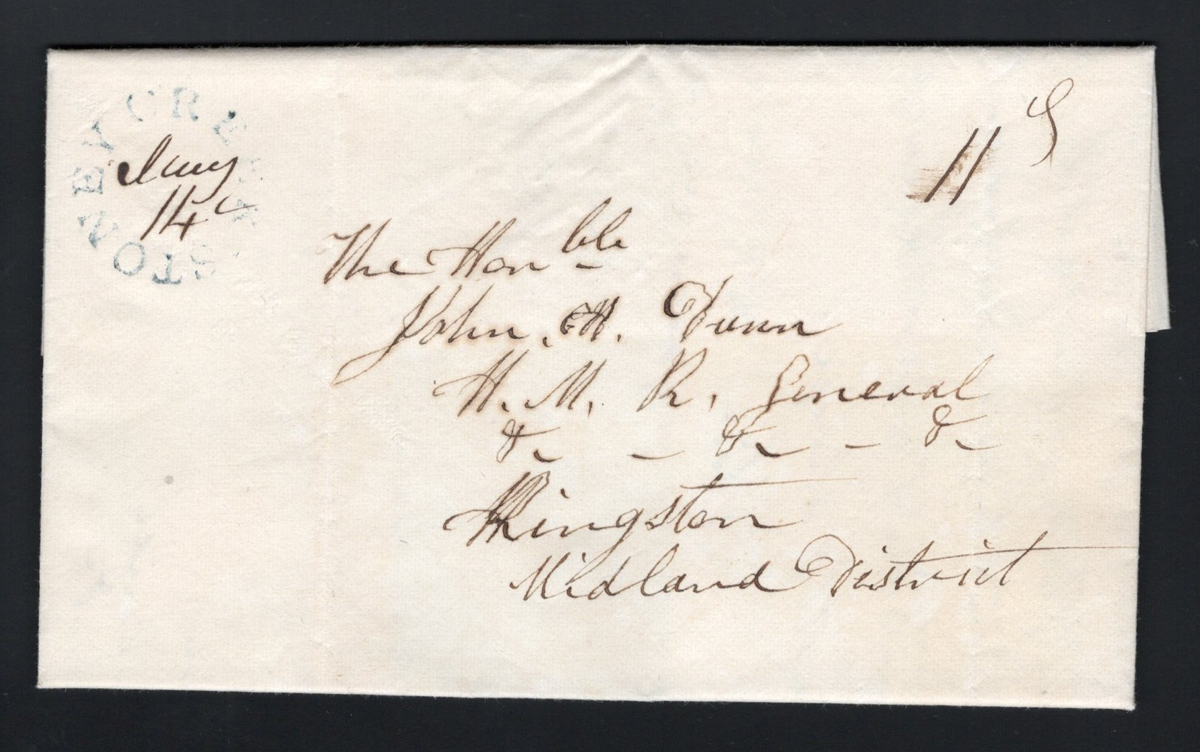 STONEY CREEK
Jany
14
11
The Honble
John. H. Dunn
H. M. R. General
&c - &c - &c
Kingston
Midland District